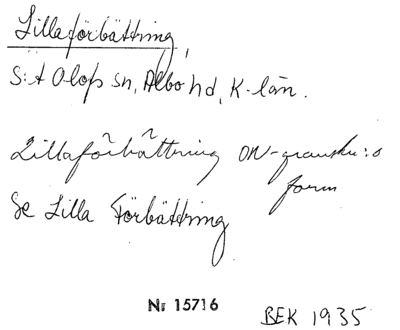 Lillaförbättring,
S:t Olofs sn, Albo hd, K-län.
Lillaförbättring ON-gransku:s
form
Se Lilla Förbättring
Nr 15716
BEK 1935